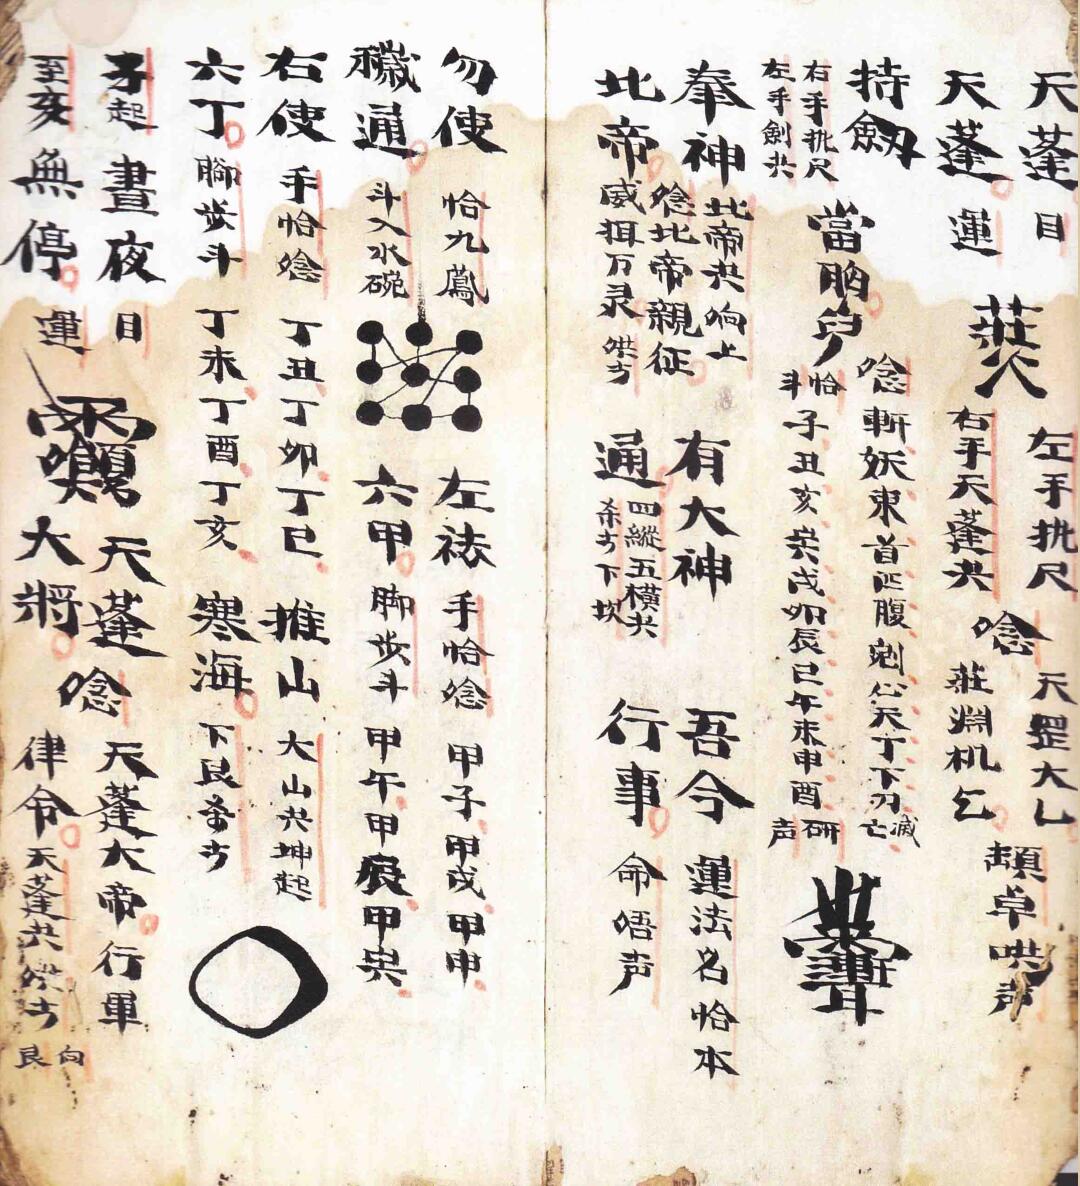 天蓬目
左手批尺
天罡大乚
天蓬運
右手天蓬共
唸
莊淵机乞
卓哄声
持劔
右手批尺
左手劍共
當胸
唸斬妖東首
腹
天丁下刀滅亡
恰
斗
子丑亥
戌卯辰巳午未申酉
研声
奉神
北帝共响上
唸北帝親征
北帝
威
万灵
有大神
通
四縱五横共
杀方下坎
吾今
行事
運法名恰本
命唔声
勿使
恰九鳳
穢通
斗入水碗
左袪
手恰唸
甲子甲戌甲申
六甲
脚步斗
甲午甲辰甲寅
右使
手恰唸
丁丑丁卯丁巳
推山
大山共坤起
六丁
腳步斗
丁未丁酉丁亥
寒海
下艮杀方
子起
晝夜
日
天蓬
唸
天蓬大帝行軍
至亥
無停
運
大將
律令
天蓬共
方
向艮